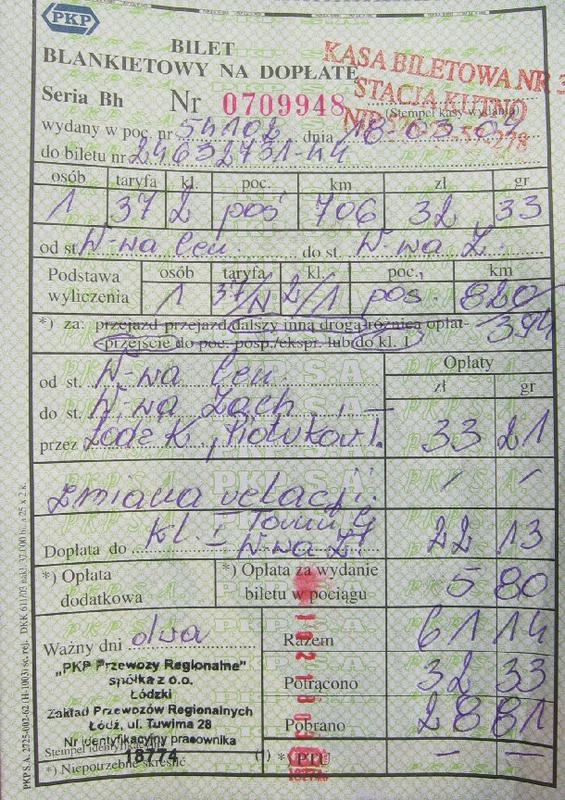 PKP
BILET
BLANKIETOWY NA DOPŁATĘ
KASA BILETOWA NR 3
STACJA KUTNO
Seria Bh Nr 0709948
(Stempel kasy wydania)
wydany w poc. nr 54102 dnia 18-03-04
do biletu nr 24632731-44
osób taryfa kl. poc. km zł gr
1 37 2 poś 706 32 33
od st. W-wa Cen. do st. W-wa Z.
Podstawa wyliczenia osób taryfa kl. poc. km
1 37/N 2/1 pos. 820/394
*) za: przejazd przejazd dalszy inną drogą różnica opłat-
przejście do poc. posp./ekspr. lub do kl. 1
Opłaty
zł gr
od st. W-wa Cen
do st. W-wa Zach.
przez Łódź K, Piotrków T. 33 21
zmiana relacji! / /
kl. 1 Toruń G
Dopłata do W-wa Z! 22 13
*) Opłata dodatkowa
*) Opłata za wydanie biletu w pociągu 5 80
Ważny dni dwa
Razem 61 14
Potrącono 32 33
Pobrano 28 81
"PKP Przewozy Regionalne"
spółka z o.o.
Łódzki
Zakład Przewozów Regionalnych
Łódź, ul. Tuwima 28
Nr identyfikacyjny pracownika
Stempel identyfikacyjny
18774
*) Niepotrzebne skreślić
(1) * PTU — —